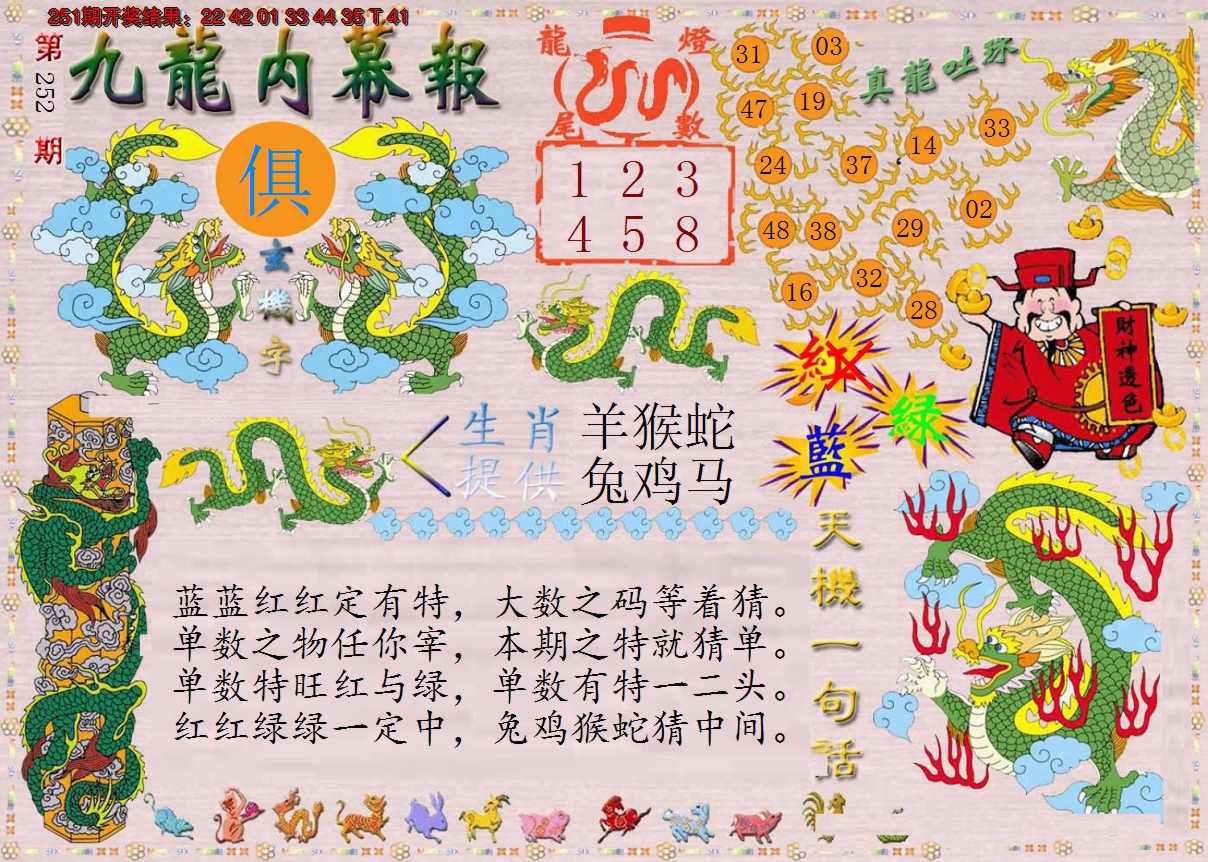 251期开奖结果：22 42 01 33 44 35 T 41
第252期
九龍内幕報
俱
玄機字
龍燈
尾數
1 2 3
4 5 8
真龍吐珠
31 03
47 19
24 37 14 33
48 38 29 02
16 32 28
財神透色
紅
绿
藍
生肖提供
羊猴蛇
兔鸡马
天機一句話
蓝蓝红红定有特，大数之码等着猜。
单数之物任你宰，本期之特就猜单。
单数特旺红与绿，单数有特一二头。
红红绿绿一定中，兔鸡猴蛇猜中间。